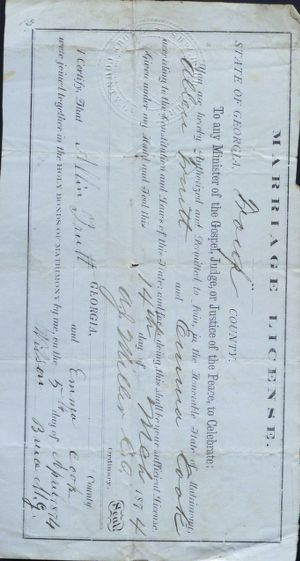 MARRIAGE LICENSE.
STATE OF GEORGIA, COUNTY:
To any Minister of the Gospel, Judge, or Justice of the Peace, to Celebrate:
You are hereby Authorized and Permitted to Join, in the Honorable State of Matrimony,
Allen Pruitt and Emma Cook
according to the Constitution and Laws of this State; and for so doing, this shall be your sufficient License.
Given under my Hand and Seal this 14th day of Mch 1874
Ordinary, Seal
GEORGIA, County
I Certify, That Allin Pruitt and Emma Cook
were joined together in the HOLY BONDS OF MATRIMONY by me, on the 5th day of April 1874
Wilson